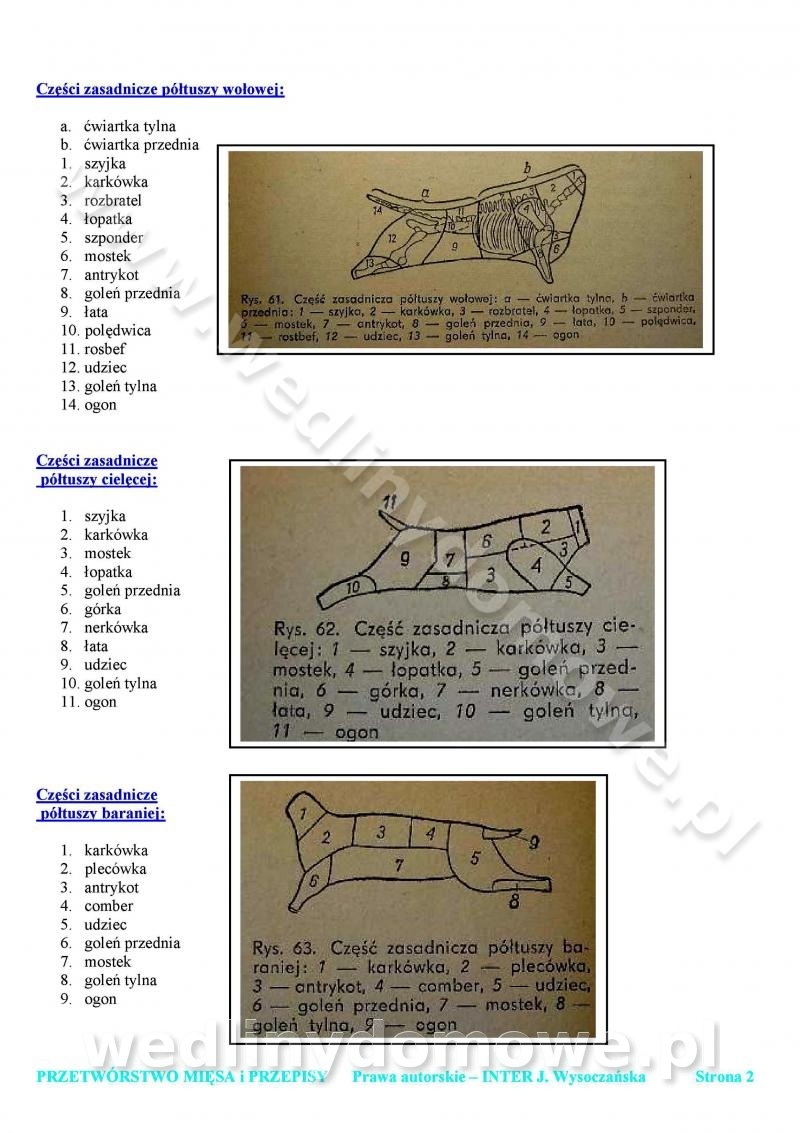 Części zasadnicze półtuszy wołowej:
a. ćwiartka tylna
b. ćwiartka przednia
1. szyjka
2. karkówka
3. rozbratel
4. łopatka
5. szponder
6. mostek
7. antrykot
8. goleń przednia
9. łata
10. polędwica
11. rosbef
12. udziec
13. goleń tylna
14. ogon
a
b
14
12
13
11
10
9
3
2
4
8
5
6
Rys. 61. Część zasadnicza półtuszy wołowej: a — ćwiartka tylna, b — ćwiartka
przednia: 1 — szyjka, 2 — karkówka, 3 — rozbratel, 4 — łopatka, 5 — szponder,
6 — mostek, 7 — antrykot, 8 — goleń przednia, 9 — łata, 10 — polędwica,
11 — rostbef, 12 — udziec, 13 — goleń tylna, 14 — ogon
Części zasadnicze
półtuszy cielęcej:
1. szyjka
2. karkówka
3. mostek
4. łopatka
5. goleń przednia
6. górka
7. nerkówka
8. łata
9. udziec
10. goleń tylna
11. ogon
11
10
9
7
8
6
3
2
4
3
1
5
Rys. 62. Część zasadnicza półtuszy cie-
lęcej: 1 — szyjka, 2 — karkówka, 3 —
mostek, 4 — łopatka, 5 — goleń przed-
nia, 6 — górka, 7 — nerkówka, 8 —
łata, 9 — udziec, 10 — goleń tylna,
11 — ogon
Części zasadnicze
półtuszy baraniej:
1. karkówka
2. plecówka
3. antrykot
4. comber
5. udziec
6. goleń przednia
7. mostek
8. goleń tylna
9. ogon
1
2
3
4
5
6
7
8
9
Rys. 63. Część zasadnicza półtuszy ba-
raniej: 1 — karkówka, 2 — plecówka,
3 — antrykot, 4 — comber, 5 — udziec,
6 — goleń przednia, 7 — mostek, 8 —
goleń tylna, 9 — ogon
www.wedlinydomowe.pl
wedlinydomowe.pl
PRZETWÓRSTWO MIĘSA i PRZEPISY Prawa autorskie – INTER J. Wysoczańska Strona 2